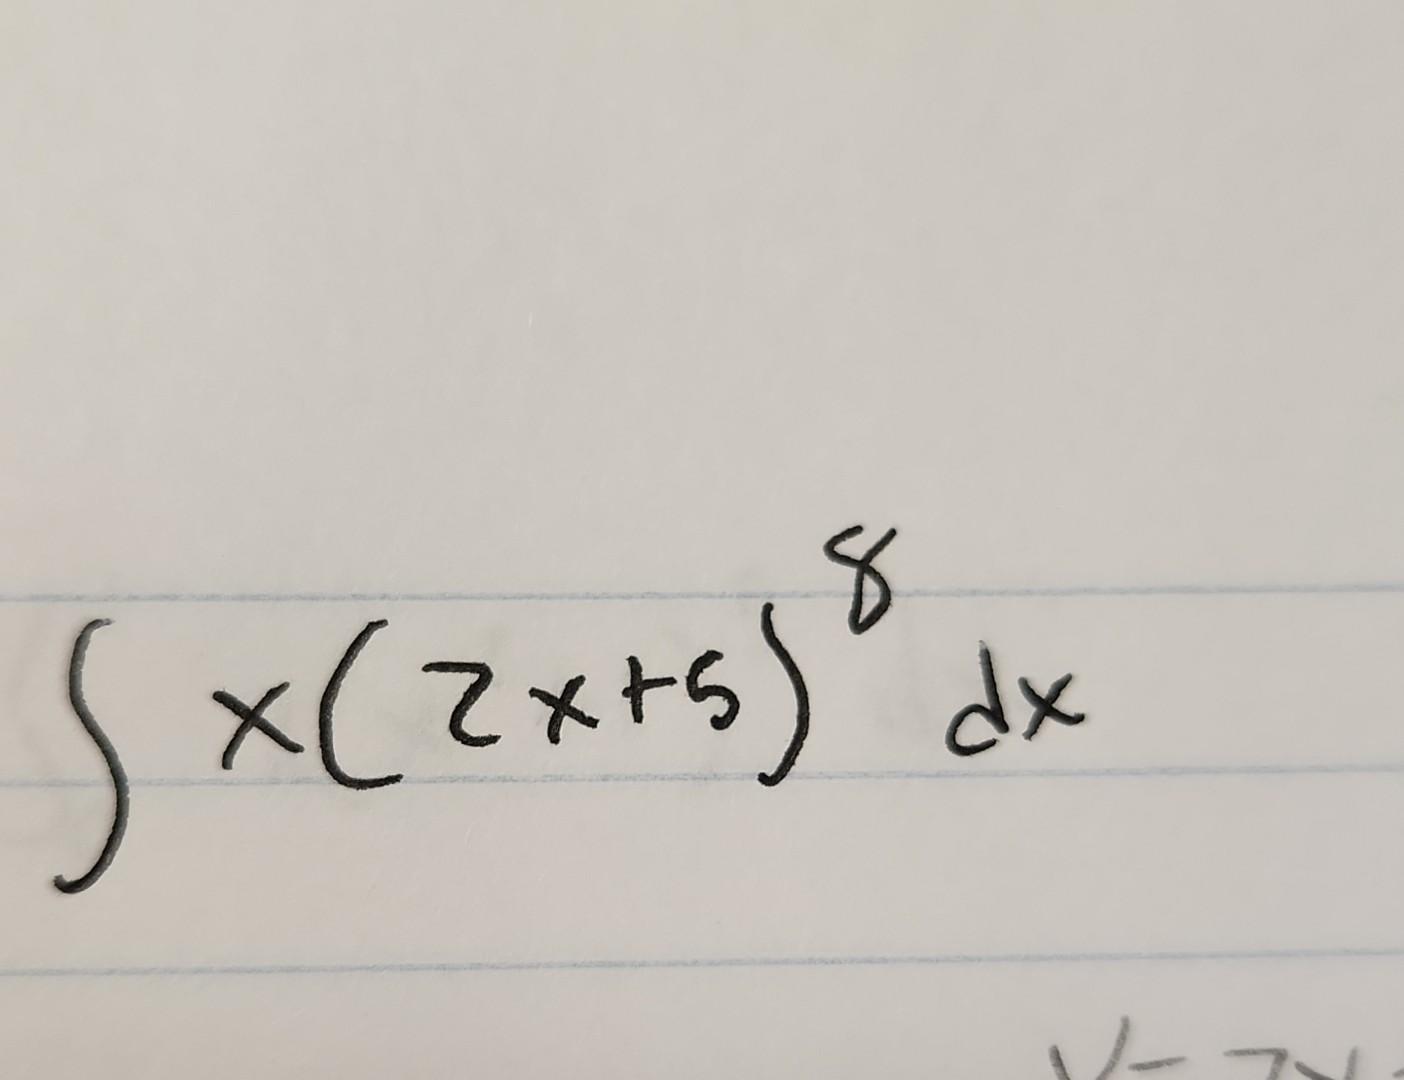 ∫ x(2x+5)⁸ dx